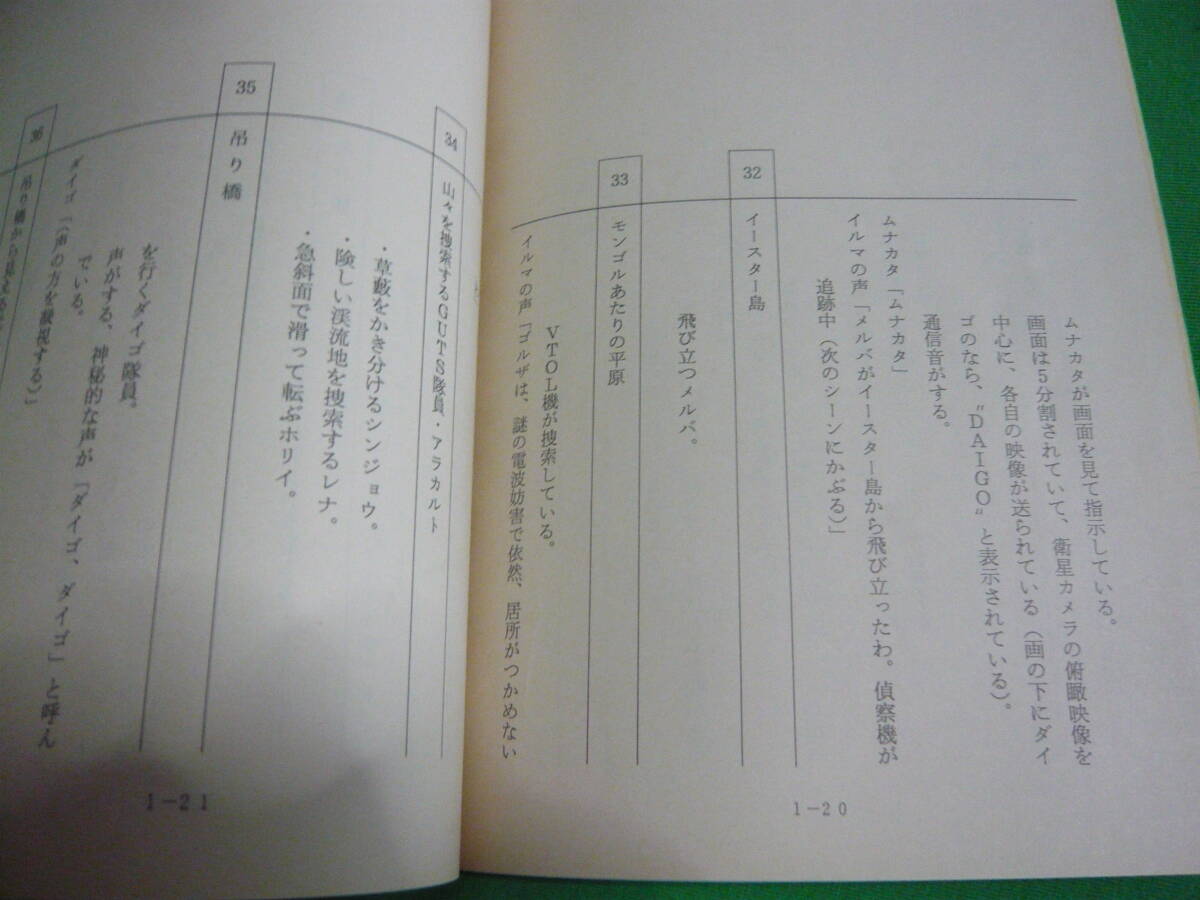 ムナカタが画面を見て指示している。
画面は5分割されていて、衛星カメラの俯瞰映像を
中心に、各自の映像が送られている（画の下にダイ
ゴのなら、〝DAIGO〟と表示されている）。
通信音がする。
ムナカタ「ムナカタ」
イルマの声「メルバがイースター島から飛び立ったわ。偵察機が
追跡中（次のシーンにかぶる）」
32 イースター島
飛び立つメルバ。
33 モンゴルあたりの平原
VTOL機が捜索している。
イルマの声「ゴルザは、謎の電波妨害で依然、居所がつかめない
1－20
34 山々を捜索するGUTS隊員・アラカルト
・草藪をかき分けるシンジョウ。
・険しい渓流地を捜索するレナ。
・急斜面で滑って転ぶホリイ。
35 吊り橋
を行くダイゴ隊員。
声がする、神秘的な声が「ダイゴ、ダイゴ」と呼ん
でいる。
ダイゴ「（声の方を凝視する）」
36 吊り橋から見
1－21